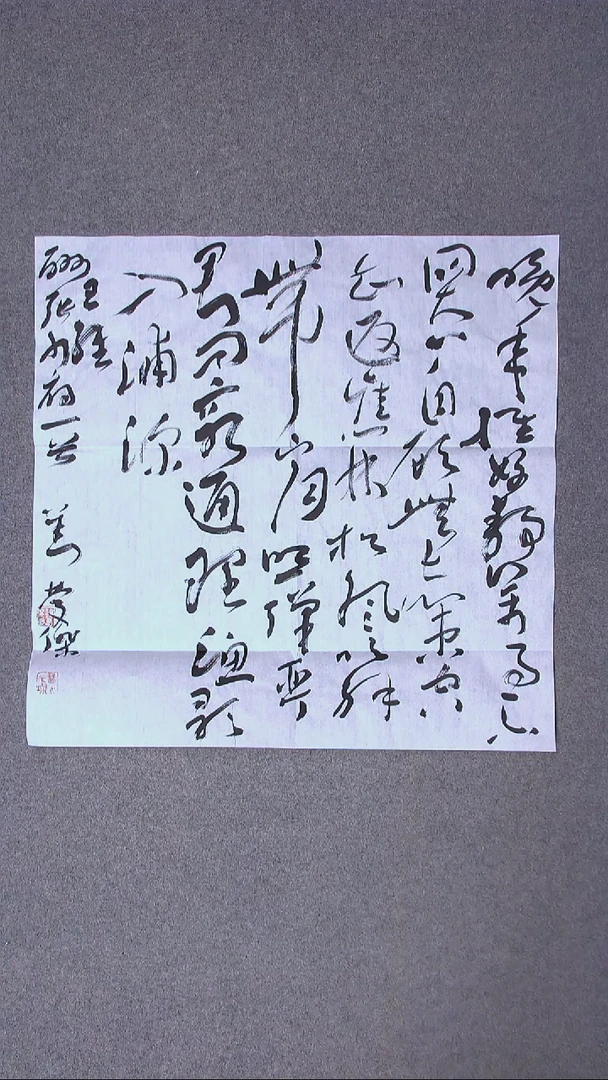 晚年惟好靜萬事不
関心自顧無長策空
知返舊林松風吹解
帶山月照彈琴
君問窮通理漁歌
入浦深
酬張少府一首
慶傑